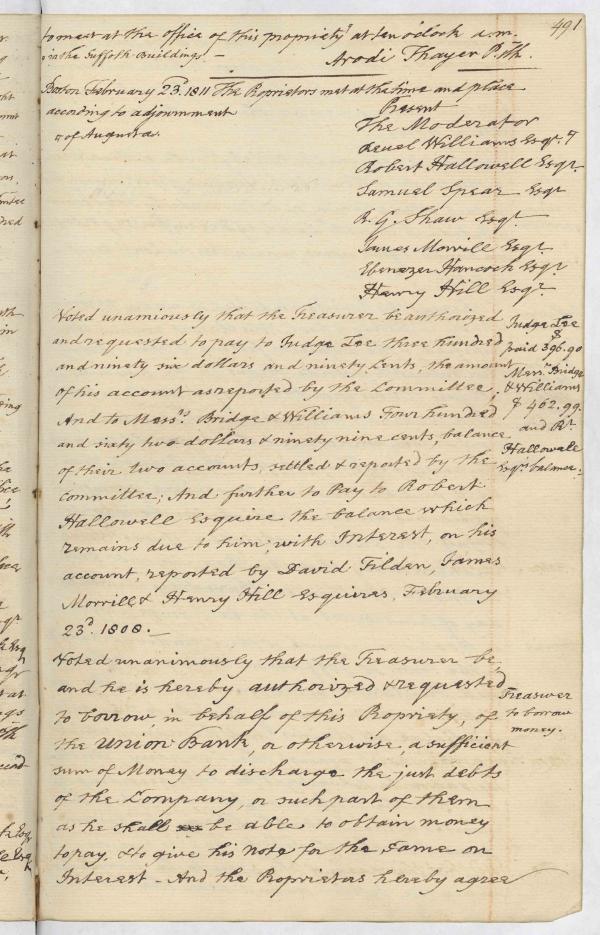 491
to meet at the office of this propriety at ten o'clock a.m.
in the Suffolk Building. —
Arodi Thayer P. Clk.
Boston February 23d. 1811 The Proprietors met at the time and place
according to adjournment
Present
The Moderator
Reuel Williams Esqr.
of Augusta.
Robert Hallowell Esqr.
Samuel Spear Esqr
R. G. Shaw Esqr.
James Morrill Esqr.
Ebenezer Hancock Esqr
Henry Hill Esqr.
Voted unamiously that the Treasurer be authorized
and requested to pay to Judge Lee three hundred
and ninety six dollars and ninety Cents, the amount
of his account as reported by the Committee,
And to Messrs. Bridge & Williams Four hundred
and sixty two dollars & ninety nine cents, balance
of their two accounts, settled & reported by the
committee; And further to Pay to Robert
Hallowell Esquire the balance which
remains due to him; with Interest, on his
account, reported by David Tilden, James
Morrill & Henry Hill Esquires, February
23d. 1808. —
Judge Lee
$
paid 396.90
Messrs. Bridge
& Williams
$ 462.99.
and Rt.
Hallowell
Esqrs. balance.
Voted unanimously that the Treasurer be,
and he is hereby authorized & requested
to borrow, in behalf of this Propriety, of
the Union Bank, or otherwise, a sufficient
sum of Money to discharge the just debts
of the Company, or such part of them
as he shall be able to obtain money
to pay, & to give his note for the same on
Interest — And the Proprietors hereby agree
Treasurer
to borrow
money.